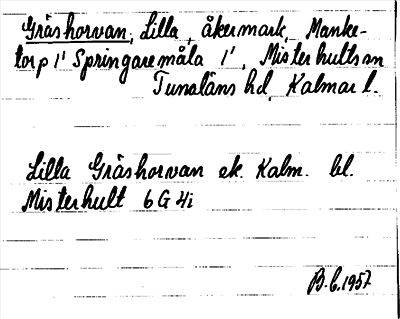 Gråshorvan, Lilla, åkermark, Manke-
torp 1¹ Springaremåla 1¹, Misterhults sn
Tunaläns hd, Kalmar l.
Lilla Gråshorvan ek. Kalm. bl.
Misterhult 6 G 4i
B.L. 1957